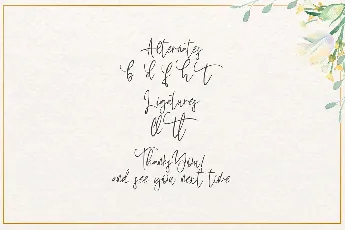 Alternates
b d f h t
Ligatures
tt tl
Thanks You!
and see you next time